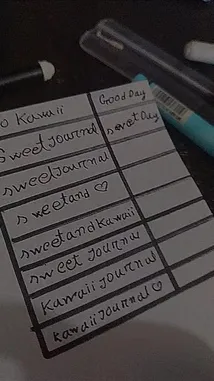 o Kawaii
Good Day
Sweet Journal
Sweet Day
sweet Journal
sweetand ♡
sweetand Kawaii
sweet Journal
Kawaii Journal
kawaii Journal ♡